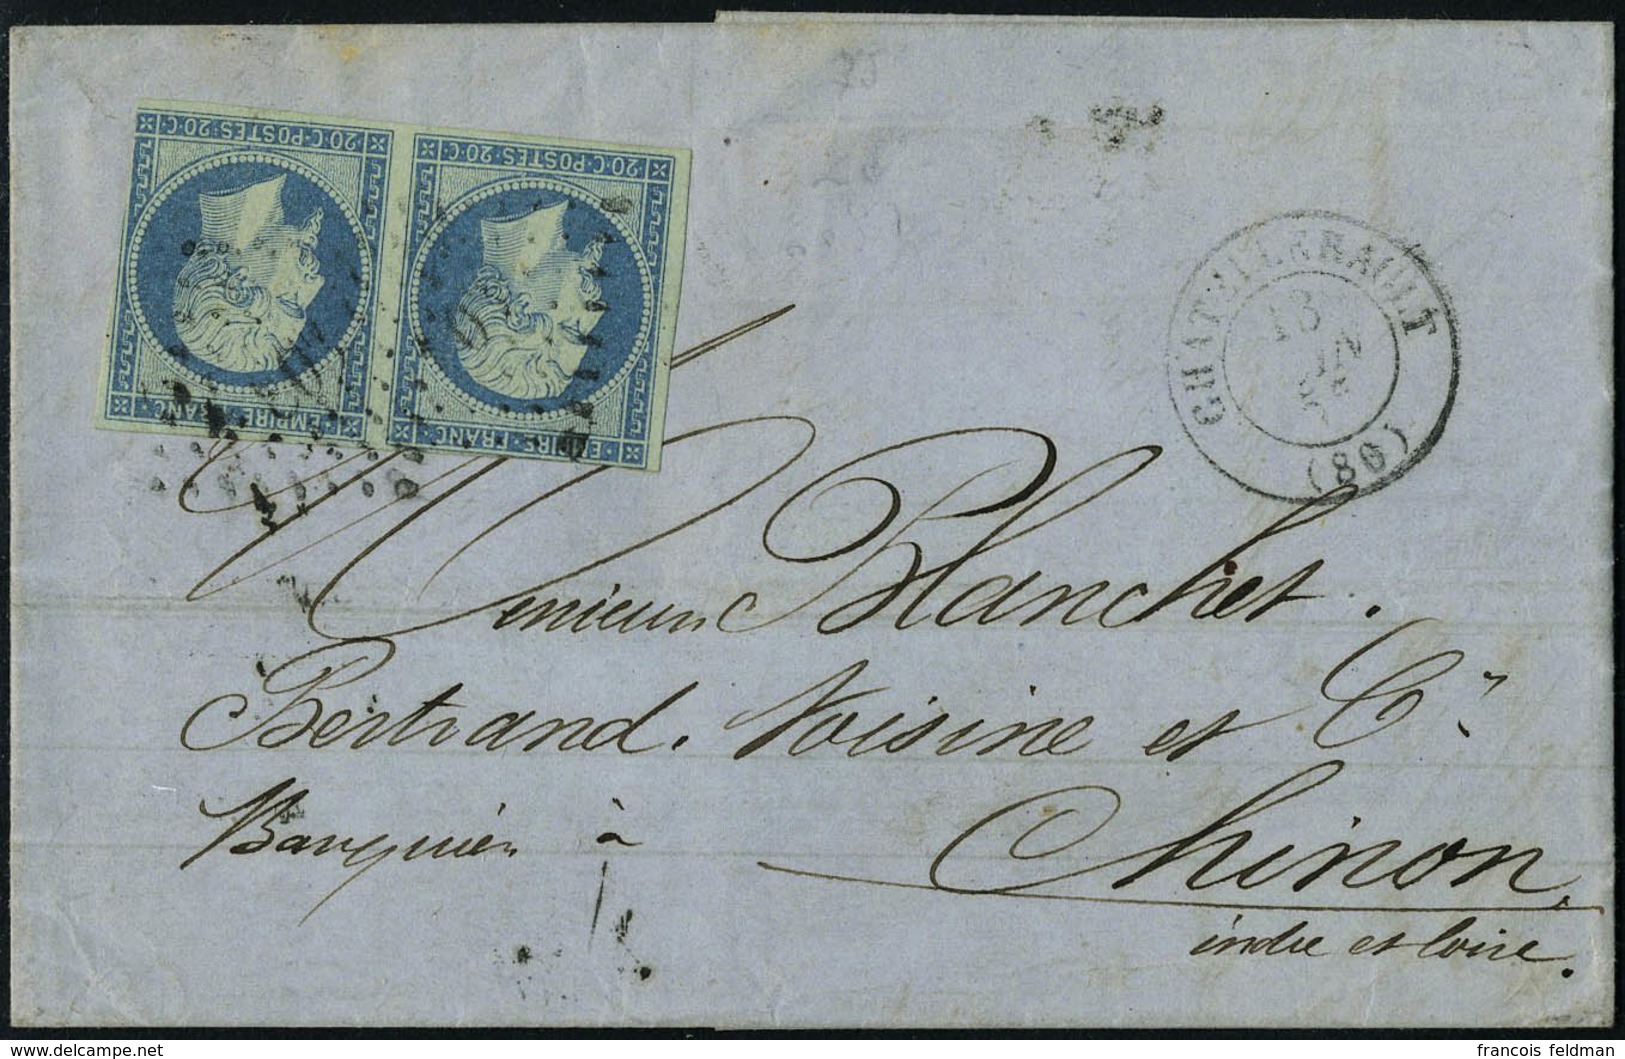 20·C·POSTES·20·C
20·C·POSTES·20·C
EMPIRE FRANC
EMPIRE·FRANC
CHATELLERAULT
13
(80)
Messieurs Blanchet.
Bertrand. Voisine et Cie
Banquiers à
Chinon
indre et Loire.
delcampe.net
francois feldman